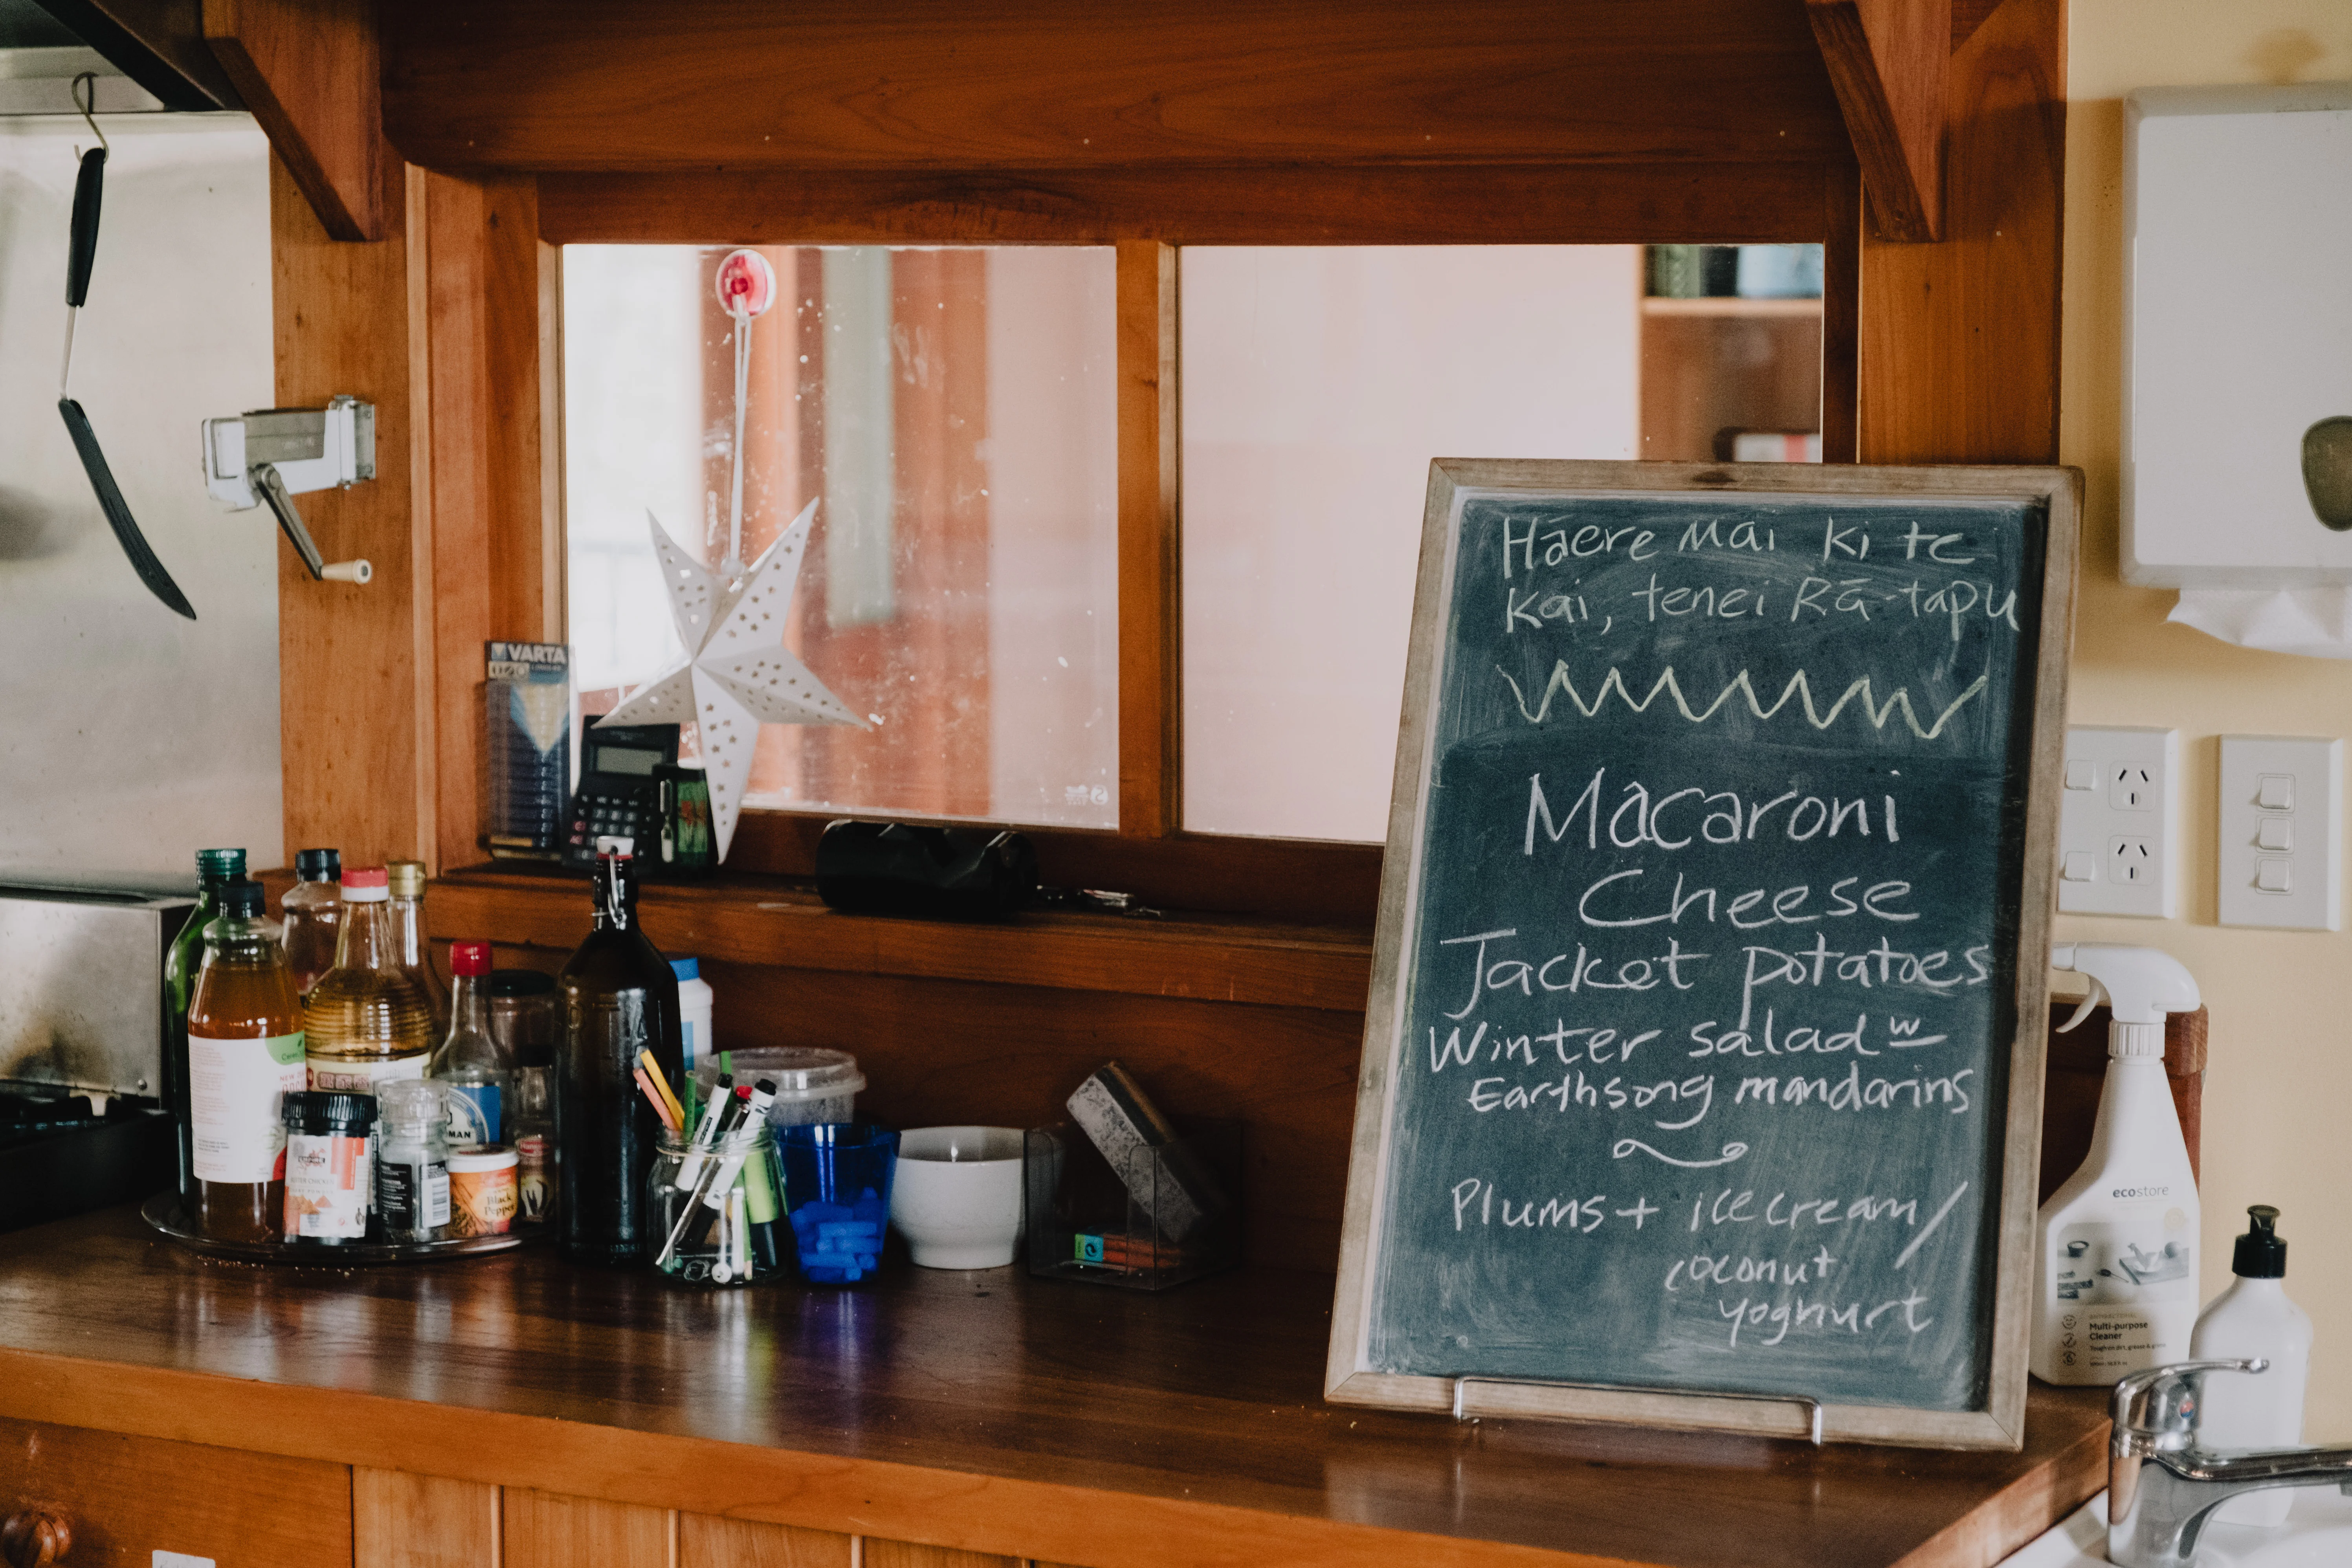 Hāere Mai ki te
Kai, tenei Rā-tapu
Macaroni
Cheese
Jacket potatoes
Winter salad w
Earthsong mandarins
Plums + ice cream /
coconut
yoghurt
VARTA
MAN
Black
Pepper
ecostore
Multi-purpose
Cleaner